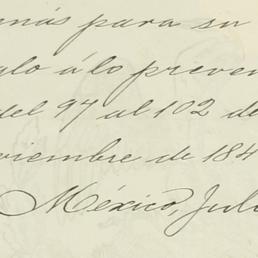 más para su
glo á lo preven
del 97 al 102 de
viembre de 184
México, Juli